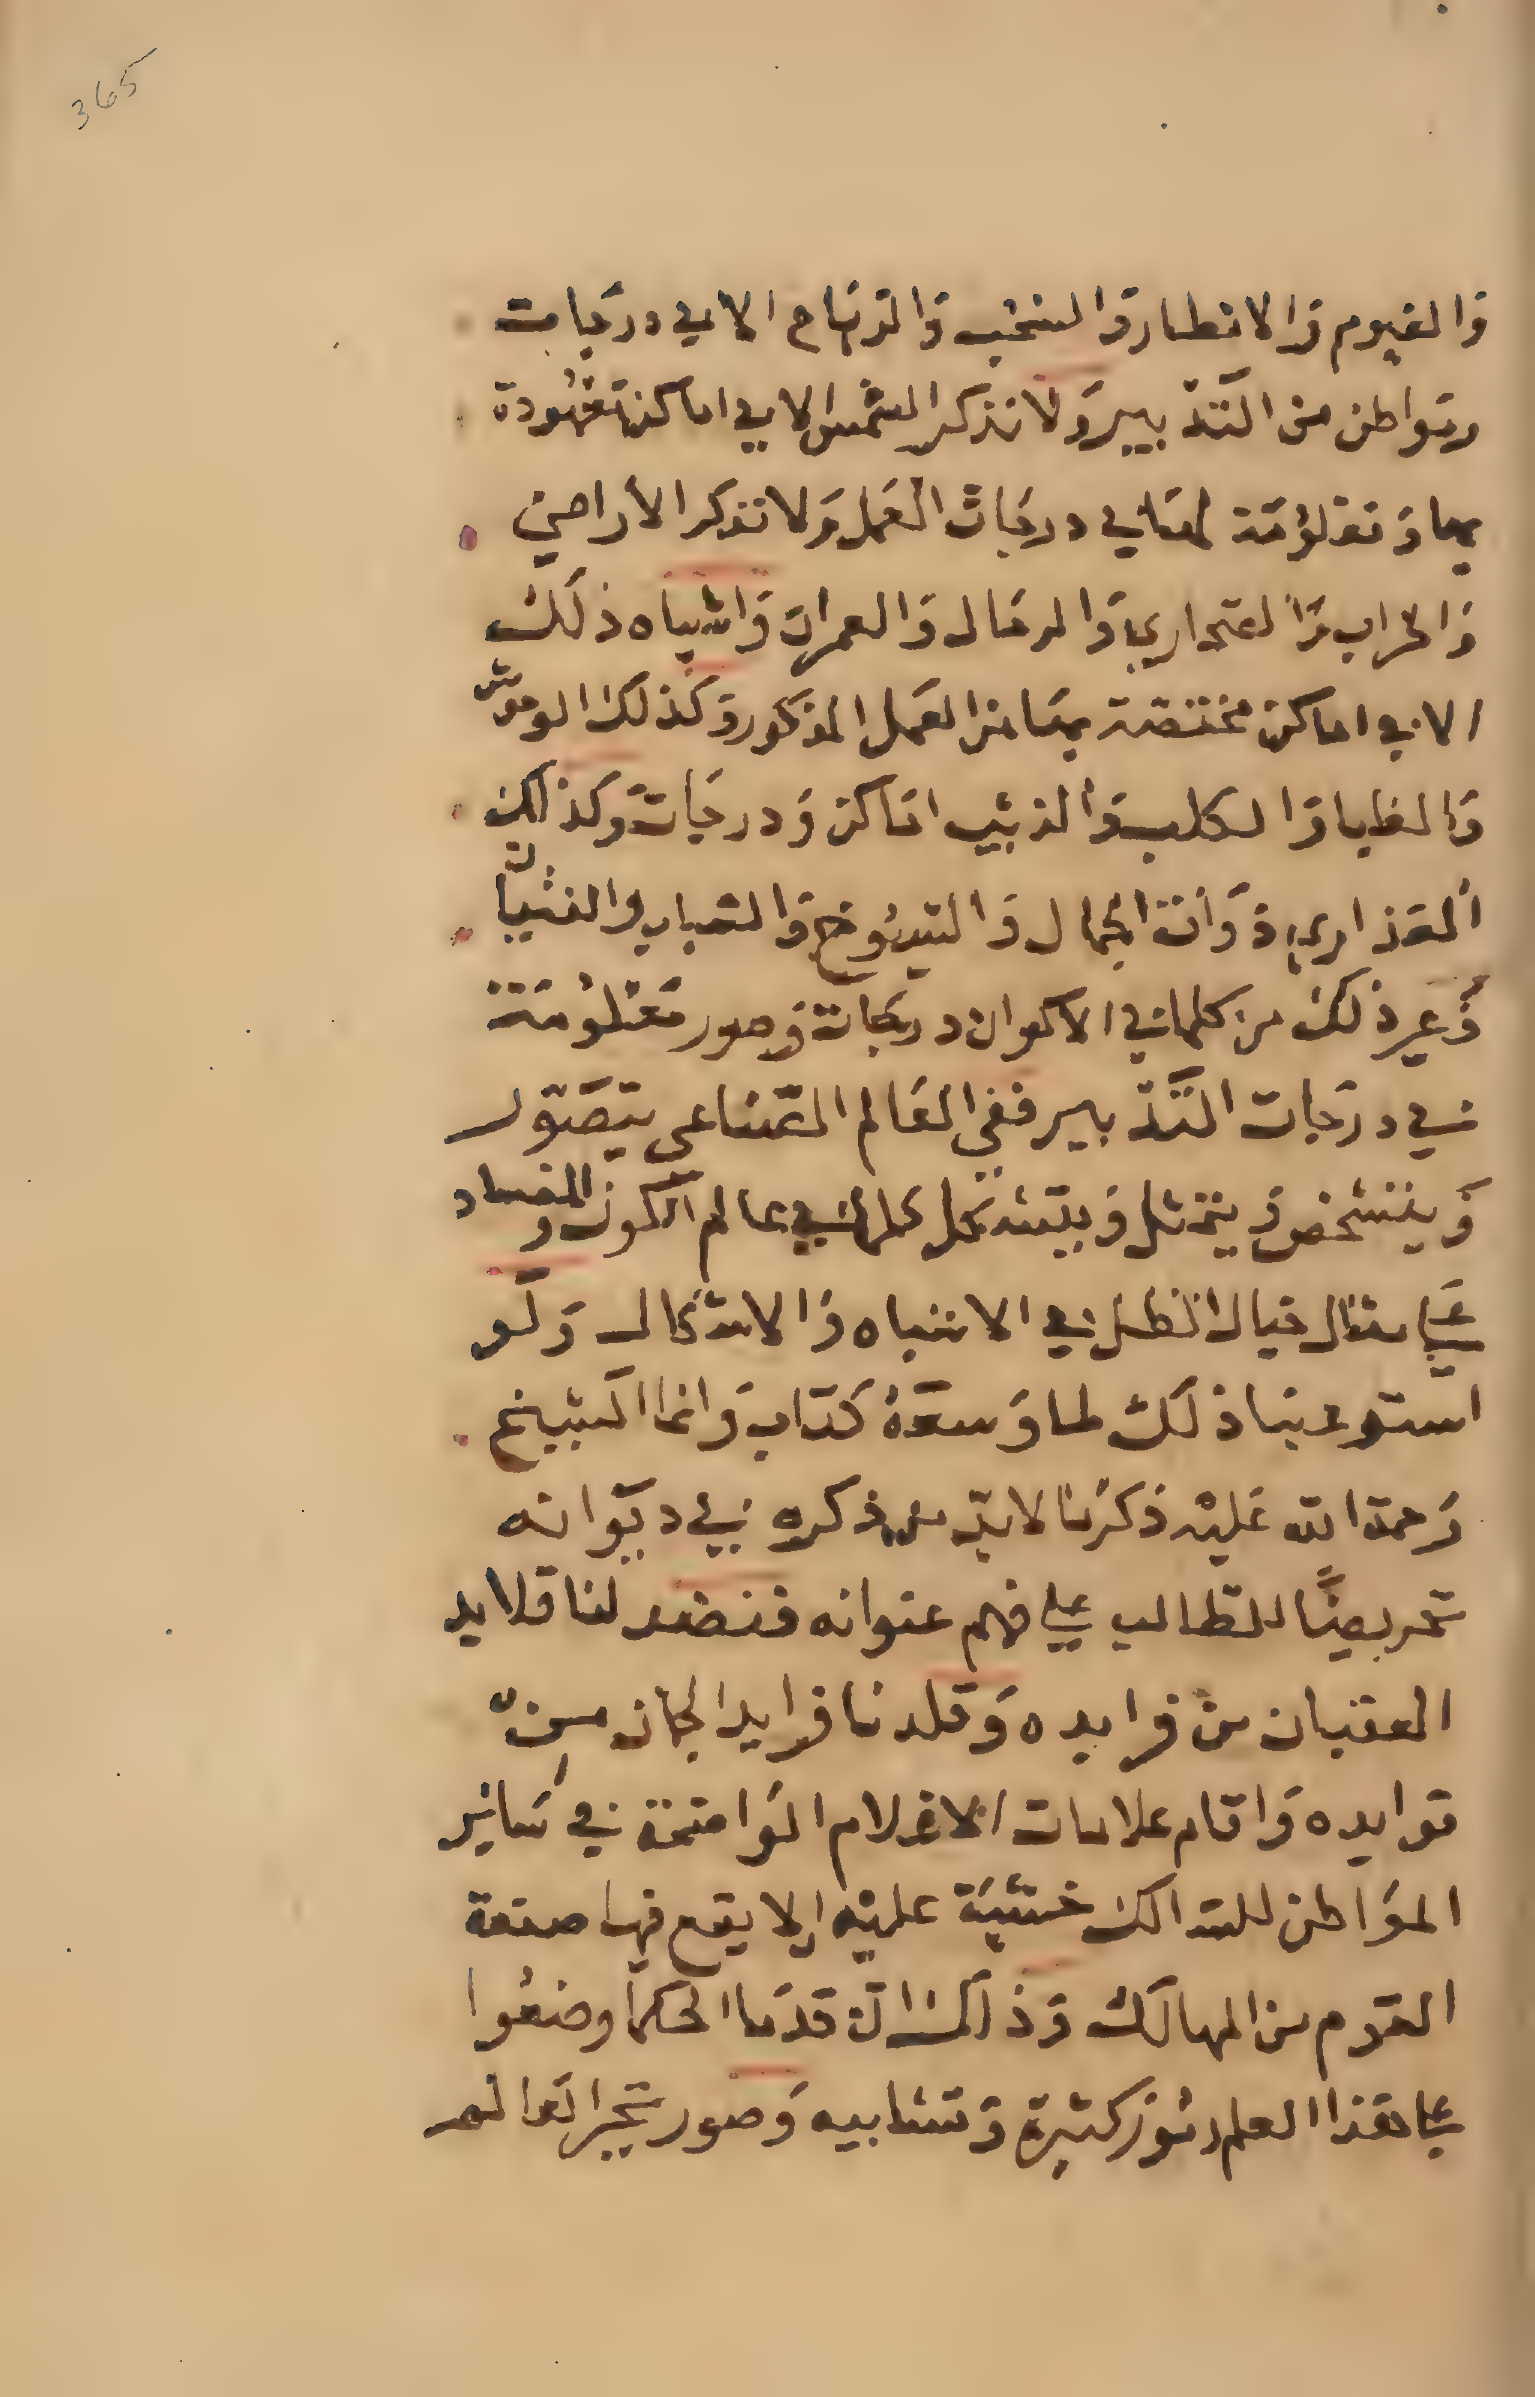 365
وَالغيوم وَالامطار وَالسحب وَالرياح الا في درجات
ومواطن من التَّدبير وَلا تذكر الشمس الا في اماكن معهُودة
بها وَمعلوُمَة لهَا في درجَات العَمل وَلا تذكر الاراضي
وَالخراب وَالصَحاري وَالرمَال وَالعمران وَاشباه ذلك
الا في اماكن مختصَة بهَا من العَمل المذكور وكذلك الوحوش
وَالظبا وَالكلب وَالذيب اماكن وَدرجَات وَكذلك
العَذاري ذوَات الجمال وَالشيوُخ وَالشباب والفتيان
وَغير ذلك من كلما في الاكوان درجَات وَصور معْلوُمَة
في درجَات التَّدبير ففي العَالم الصّناعي يتصَوّر
وَيتشخص وَيتمثل وَيتشكل كلما في عالم الكون والفساد
عَلي مثال خيال الظل في الاشباه وَالاشكال وَلَو
استوعبنَا ذلك لما وَسعَهُ كتَاب وَانما الشيخ
رَحمة الله عَليْه ذكرَ مَا لا بدّ من ذكره في ديوَانه
تحريضًا للطالب علي فهم عنوانه فنضد لنا قلايد
العقيان من فرايده وَقلدنا فرايد الجمان من
فوايده وَاقام علامات الاعلام الوَاضحة في سَاير
الموَاطن للسالك خشيَة عليْه الا يقع فيها صنعة
القوم من المهالك وَذلك ان قدمَا الحكما وضعُوا
علي هَذا العلم رمُوز كثيرة وَتشابيه وَصور تحير العَالم